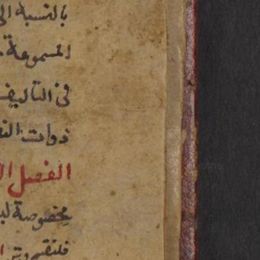 بالنسبة الى
المسموعة
فى التاليف
ذوات النغ
الفصل ال
مخصوصة لب